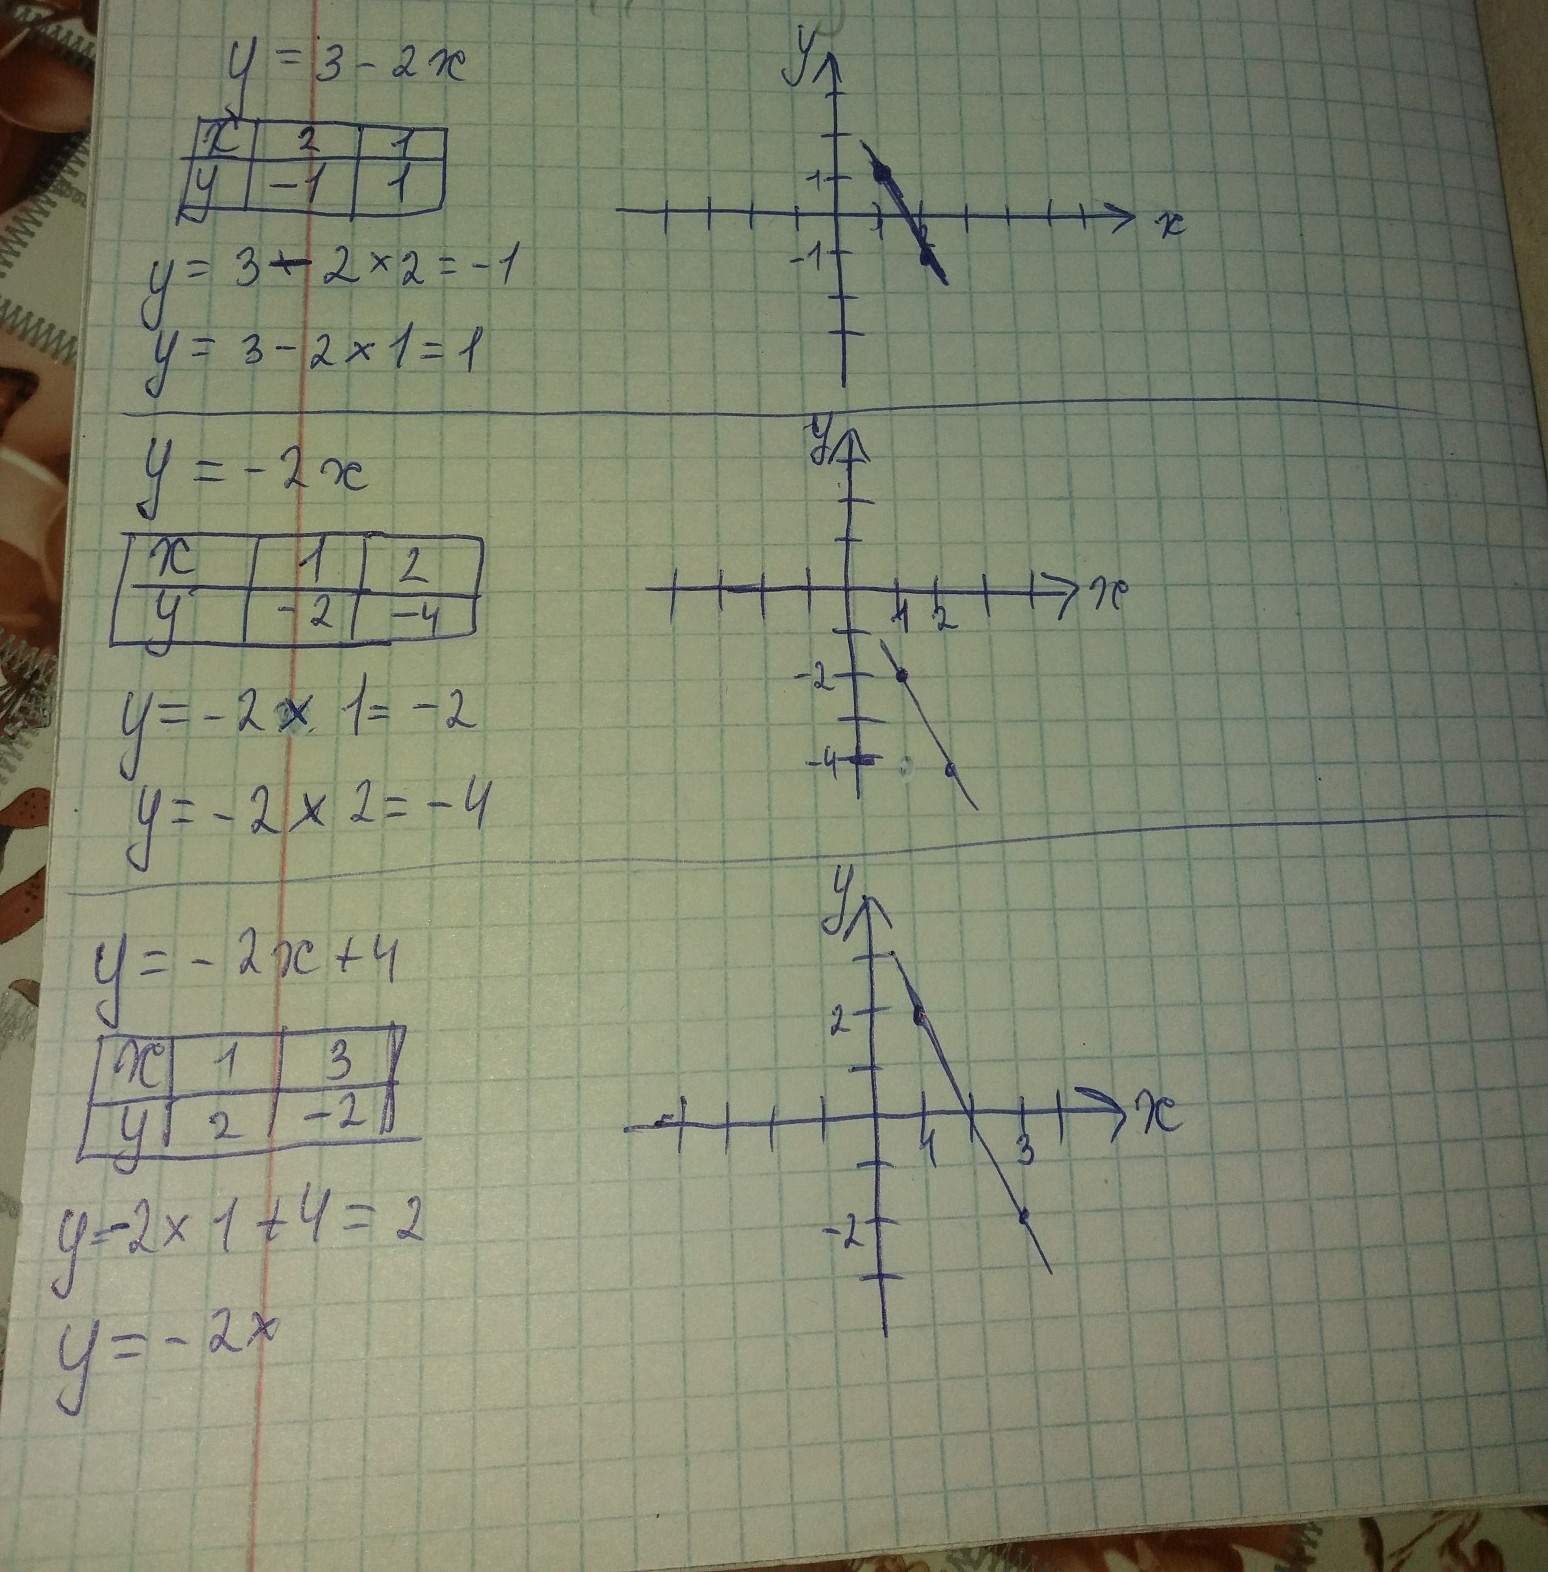 y = 3 - 2x
x 2 1
y -1 1
y = 3 - 2 × 2 = -1
y = 3 - 2 × 1 = 1
y
1
-1
1 2
x
y = -2x
x 1 2
y -2 -4
y = -2 × 1 = -2
y = -2 × 2 = -4
y
1 2
x
-2
-4
y = -2x + 4
x 1 3
y 2 -2
y = -2 × 1 + 4 = 2
y = -2×
y
2
1 3
x
-2